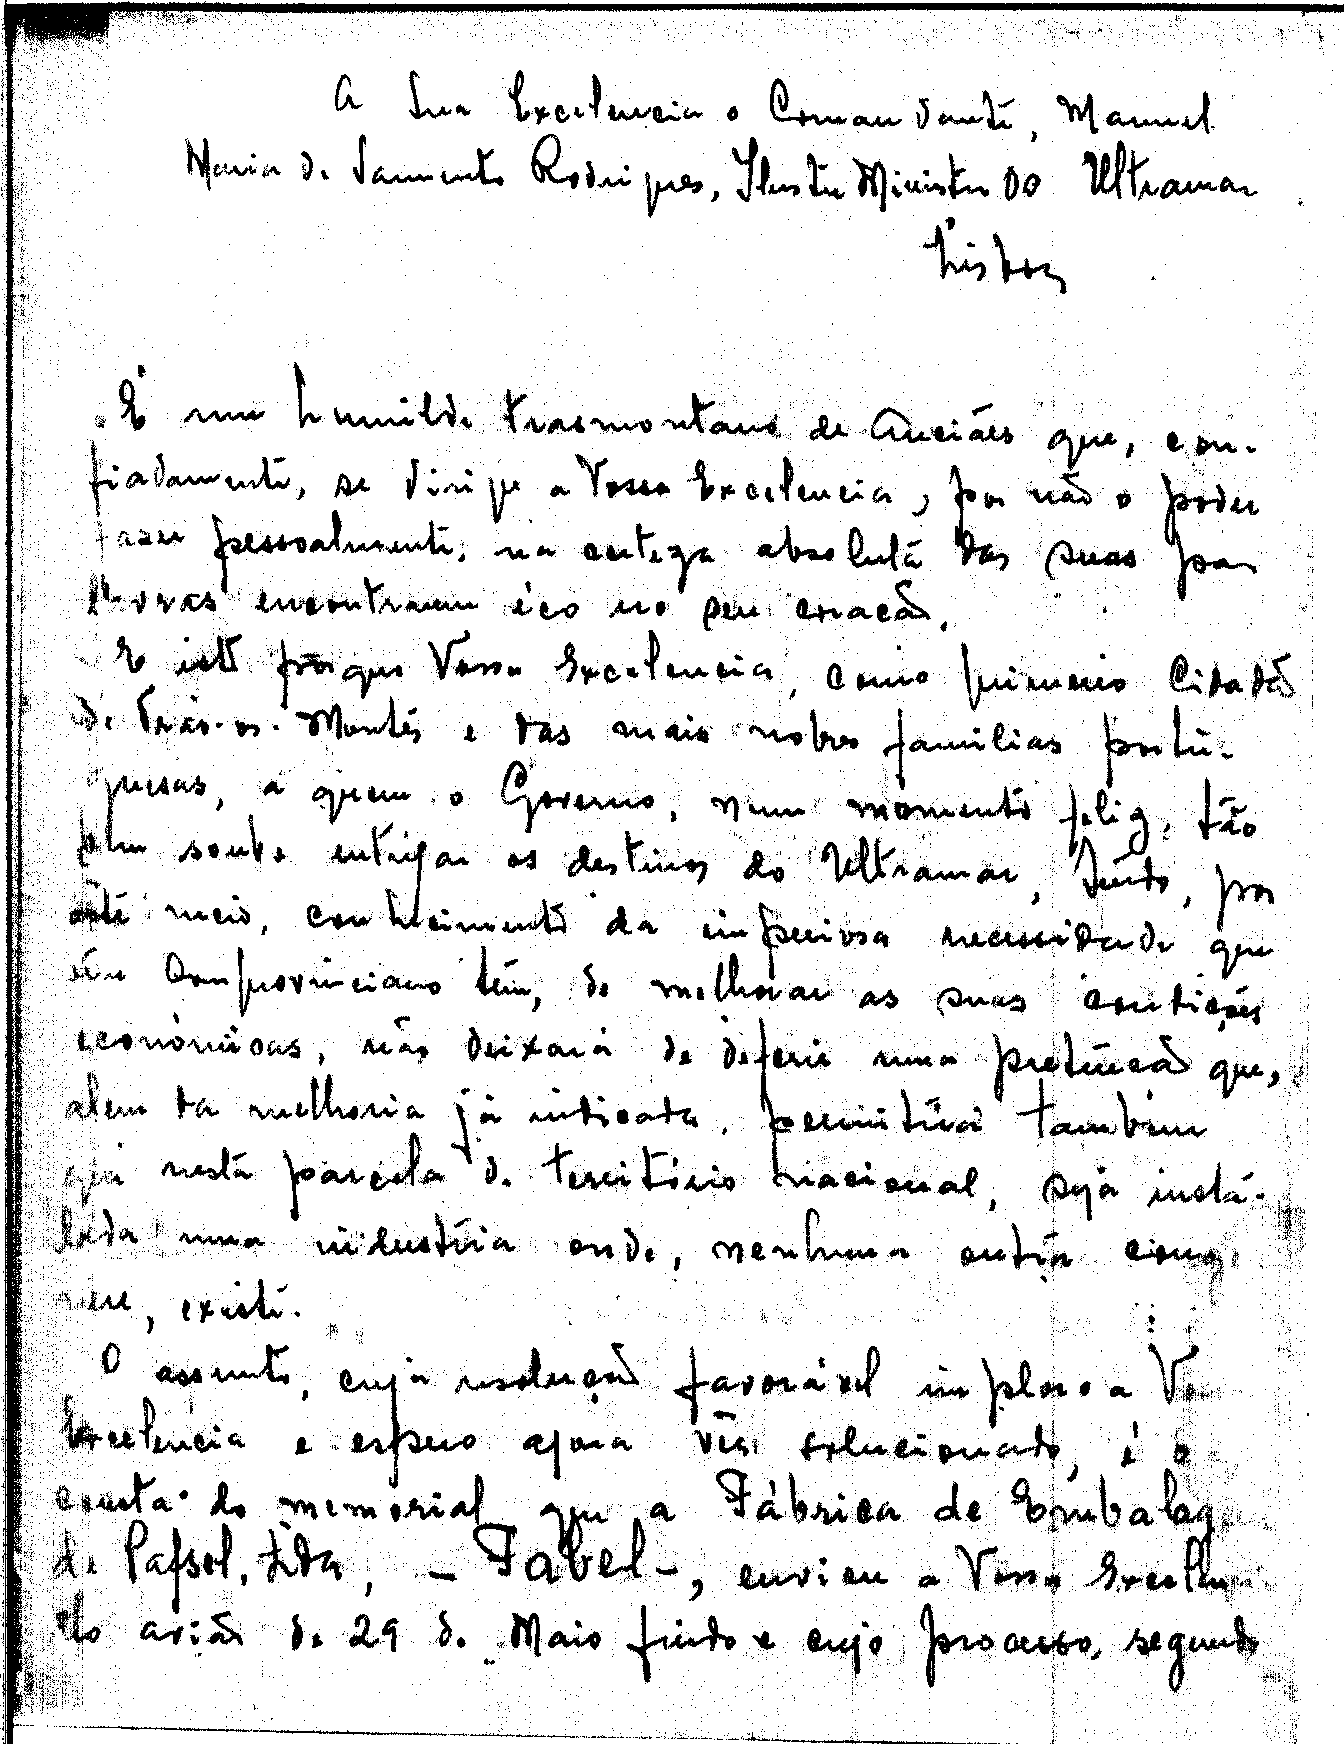 A Sua Excelencia o Comandante, Manuel
Maria de Sarmento Rodrigues, Ilustre Ministro do Ultramar
Lisboa
É um humilde trasmontano de Anciães que, con-
fiadamente, se dirige a Vossa Excelencia, por não o poder
fazer pessoalmente, na certeza absoluta das suas pa-
lavras encontrarem éco no seu coracão.
E isto porque Vossa Excelencia, como primeiro Cidadão
de Trás-os-Montes e das mais nobres familias portu-
guesas, a quem o Governo, num momento feliz, tão
bem soube entregar os destinos do Ultramar, tendo, por
este meio, conhecimento da imperiosa necessidade que
um Comprovinciano têm, de melhorar as suas condições
económicas, não deixará de deferir uma pretencão que,
alem da melhoria já indicada, permitirá tambem
que nesta parcela de território nacional, seja insta-
lada uma industria onde, nenhuma outra cong
nere, existe.
O assunto, cuja resolução favorável imploro a Vo
Excelencia e espero agora vêr solucionado, é o
consta do memorial que a Fábrica de Embalag
de Papel, Lda, - Fabel -, enviou a Vossa Excelen
pelo avião de 29 de Maio findo e cujo processo, segundo